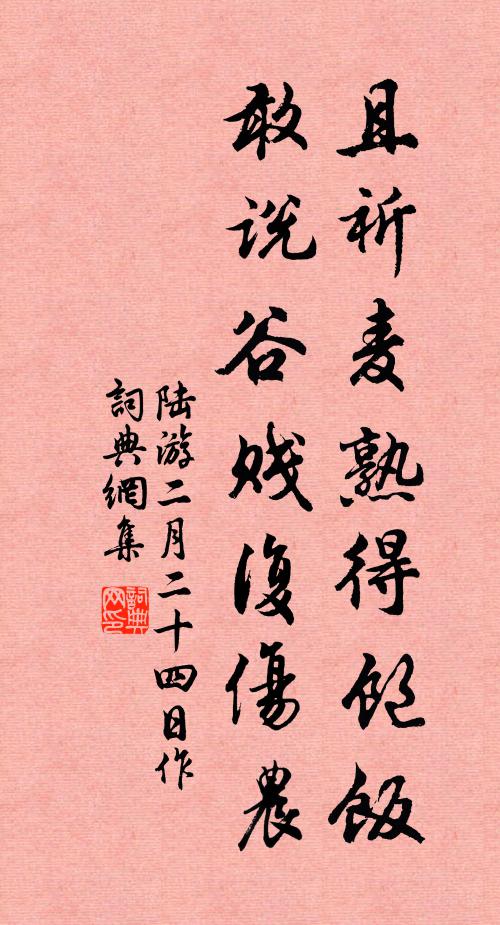 且祈麦熟得飽飯
敢说谷贱復傷農
陆游二月二十四日作
詞典網集
詞典网印